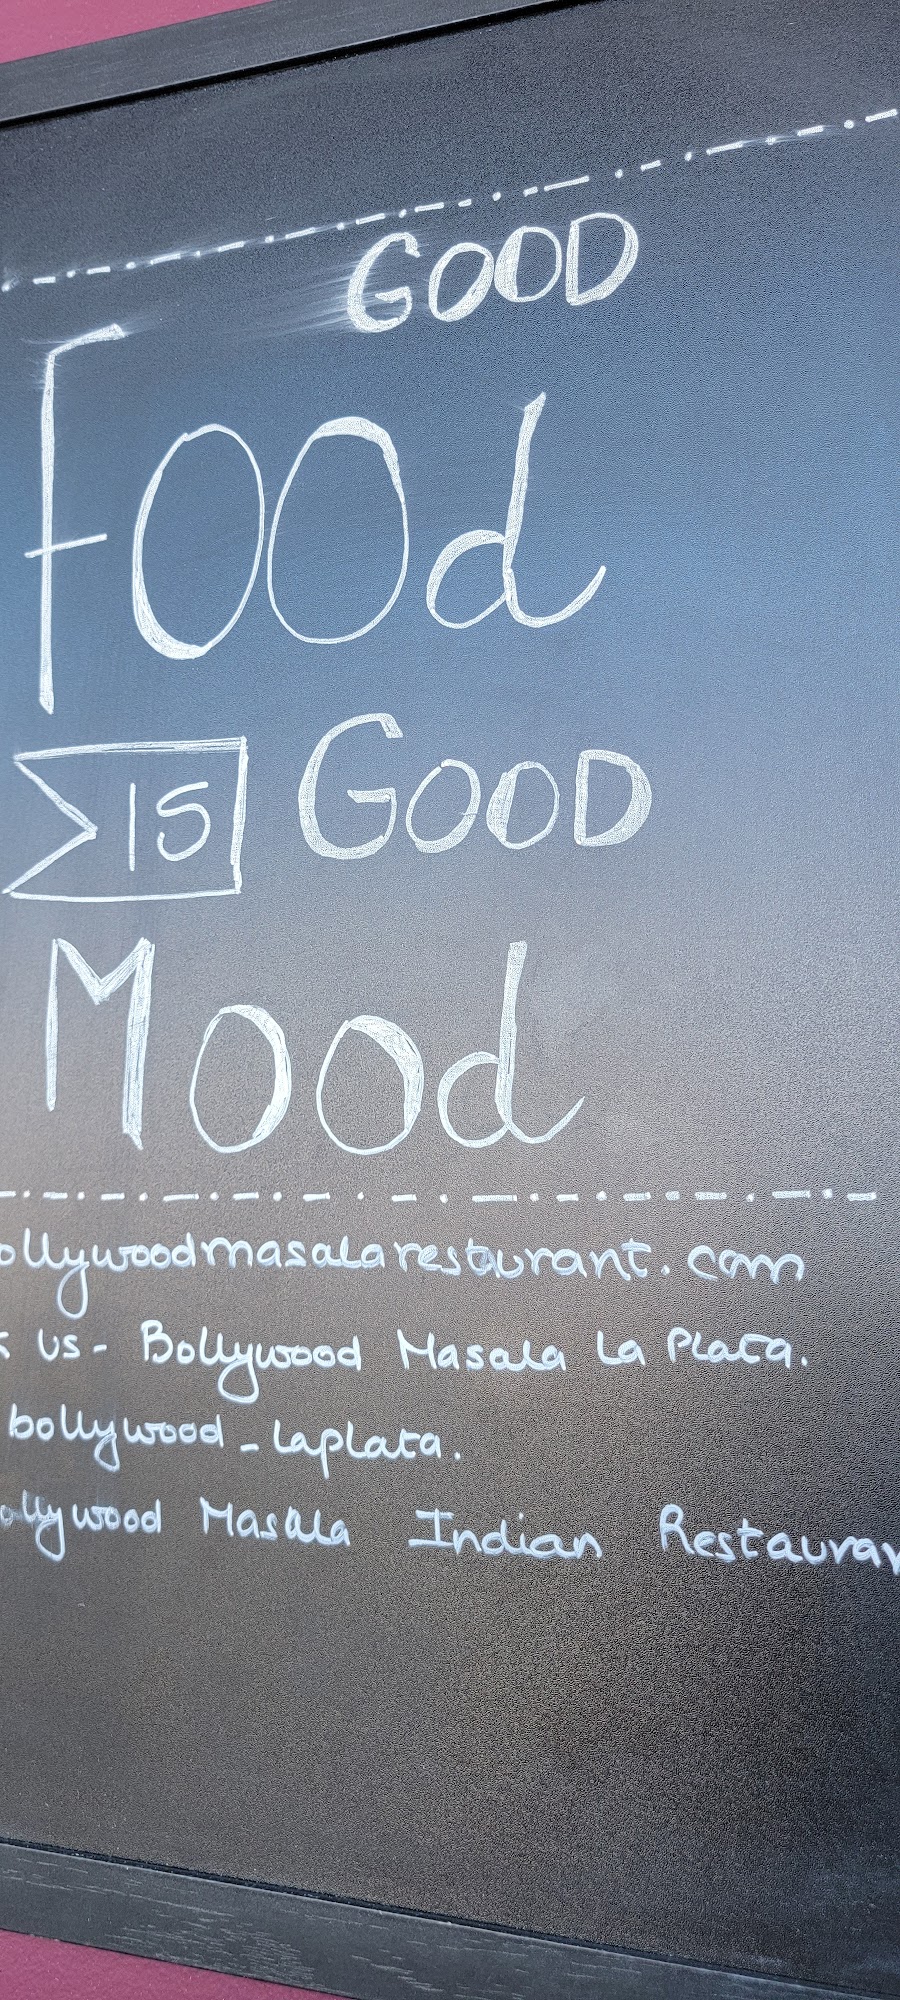 GOOD
Food
IS GOOD
Mood
ollywoodmasalarestaurant.com
us - Bollywood Masala La Plata.
bollywood_laplata.
ollywood Masala Indian Restauran